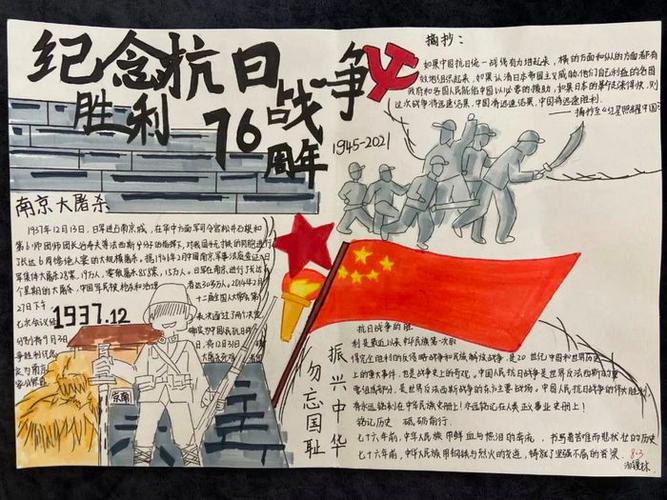 纪念抗日战争
胜利76周年
1945-2021
摘抄：
如果中国抗日统一战线有力组起来，横的方面和纵的方面都有
效地组织起来，如果认清日本帝国主义威胁他们自己利益的各国
政府和各国人民能给中国以必要的援助，如果日本的革命起来得快，则
这次战争将迅速结束，中国将迅速胜利。
——摘抄至《红星照耀中国》
南京大屠杀
1937年12月13日，日军进占南京城，在华中方面军司令官松井石根和
第6师团师团长谷寿夫等法西斯分子的指挥下，对我国手无寸铁的同胞进行
了长达6周惨绝人寰的大规模屠杀。
军集体大屠杀28案，19万人，零散屠杀858案，15万人。日军在南京进行了长达
个星期的大屠杀，中国军民被枪杀和活埋者达30多万人。2014年2月
27日下午
七次会议
1937.12
南京
勿忘国耻
振兴中华
抗日战争的胜
利是最近以来中华民族第一次的
得完全胜利的反侵略战争和民族解放战争，是20世纪中国和世界历史
上的重大事件，也是战争史上的奇观。中国人民抗日战争是世界反法西斯战争的重
要组成部分，是世界反法西斯战争的东方主要战场，中国人民抗日战争的伟大胜利，
将永远铭刻在中华民族史册上！永远铭记在人类正义事业史册上！
铭记历史 砥砺前行
七十六年前，中华人民族用鲜血与热泪的奔流，书写着苦难而悲状壮的历史
七十六年前，中华人民族用钢铁与烈火的交迸，铸就了坚强不屈的脊梁。
8.3